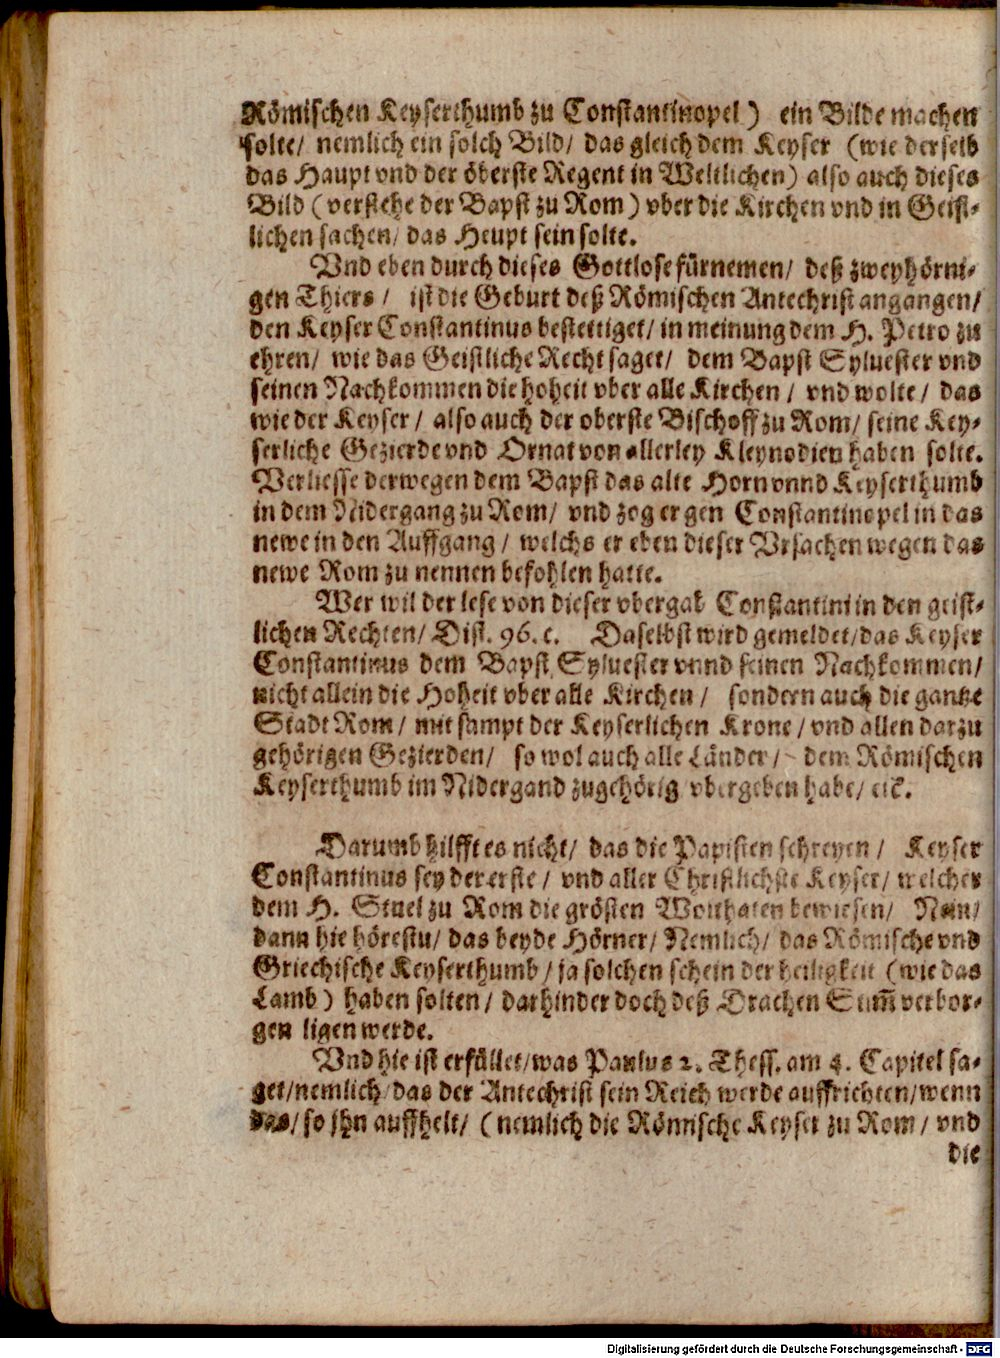 Römischen Keyserthumb zu Constantinopel) ein Bilde machen
solte/ nemlich ein solch Bild/ das gleich dem Keyser (wie derselb
das Haupt vnd der öberste Regent in Weltlichen) also auch dieses
Bild (verstehe der Bapst zu Rom) vber die Kirchen vnd in Geist-
lichen sachen/ das Heupt sein solte.
Vnd eben durch dieses Gottlose fürnemen/ deß zweyhörni-
gen Thiers/ ist die Geburt deß Römischen Antechrist angangen/
den Keyser Constantinus bestettiget/ in meinung dem H. Petro zu
ehren/ wie das Geistliche Recht saget/ dem Bapst Syluester vnd
seinen Nachkommen die hoheit vber alle Kirchen/ vnd wolte/ das
wie der Keyser/ also auch der oberste Bischoff zu Rom/ seine Key-
serliche Gezierde vnd Ornat von allerley Kleynodien haben solte.
Verliesse derwegen dem Bapst das alte Horn vnnd Keyserthumb
in dem Nidergang zu Rom/ vnd zog er gen Constantinopel in das
newe in den Auffgang/ welchs er eben dieser Vrsachen wegen das
newe Rom zu nennen befohlen hatte.
Wer wil der lese von dieser vbergab Constantini in den geist-
lichen Rechten/ Dist. 96. c. Daselbst wird gemeldet/ das Keyser
Constantinus dem Bapst Syluester vnnd seinen Nachkommen/
nicht allein die Hoheit vber alle Kirchen/ sondern auch die gantze
Stadt Rom/ mit sampt der Keyserlichen Krone/ vnd allen darzu
gehörigen Gezierden/ so wol auch alle Länder/ dem Römischen
Keyserthumb im Nidergand zugehörig vbergeben habe/ etc.
Darumb hilfft es nicht/ das die Papisten schreyen/ Keyser
Constantinus sey der erste/ vnd aller Christlichste Keyser/ welcher
dem H. Stuel zu Rom die grösten Wolthaten bewiesen/ Nein/
dann hie hörestu/ das beyde Hörner/ Nemlich/ das Römische vnd
Griechische Keyserthumb/ ja solchen schein der heiligkeit (wie das
Lamb) haben solten/ darhinder doch deß Drachen Stim̃ verbor-
gen ligen werde.
Vnd hie ist erfüllet/ was Paulus 2. Thess. am 4. Capitel sa-
get/ nemlich/ das der Antechrist sein Reich werde auffrichten/ wenn
das/ so jhn auffhelt/ (nemlich die Römische Keyser zu Rom/ vnd
die
Digitalisierung gefördert durch die Deutsche Forschungsgemeinschaft - DFG